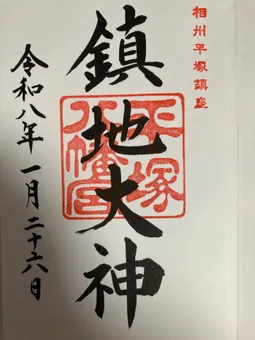 相州平塚鎮座
鎮地大神
平塚八幡宮
令和八年一月二十六日